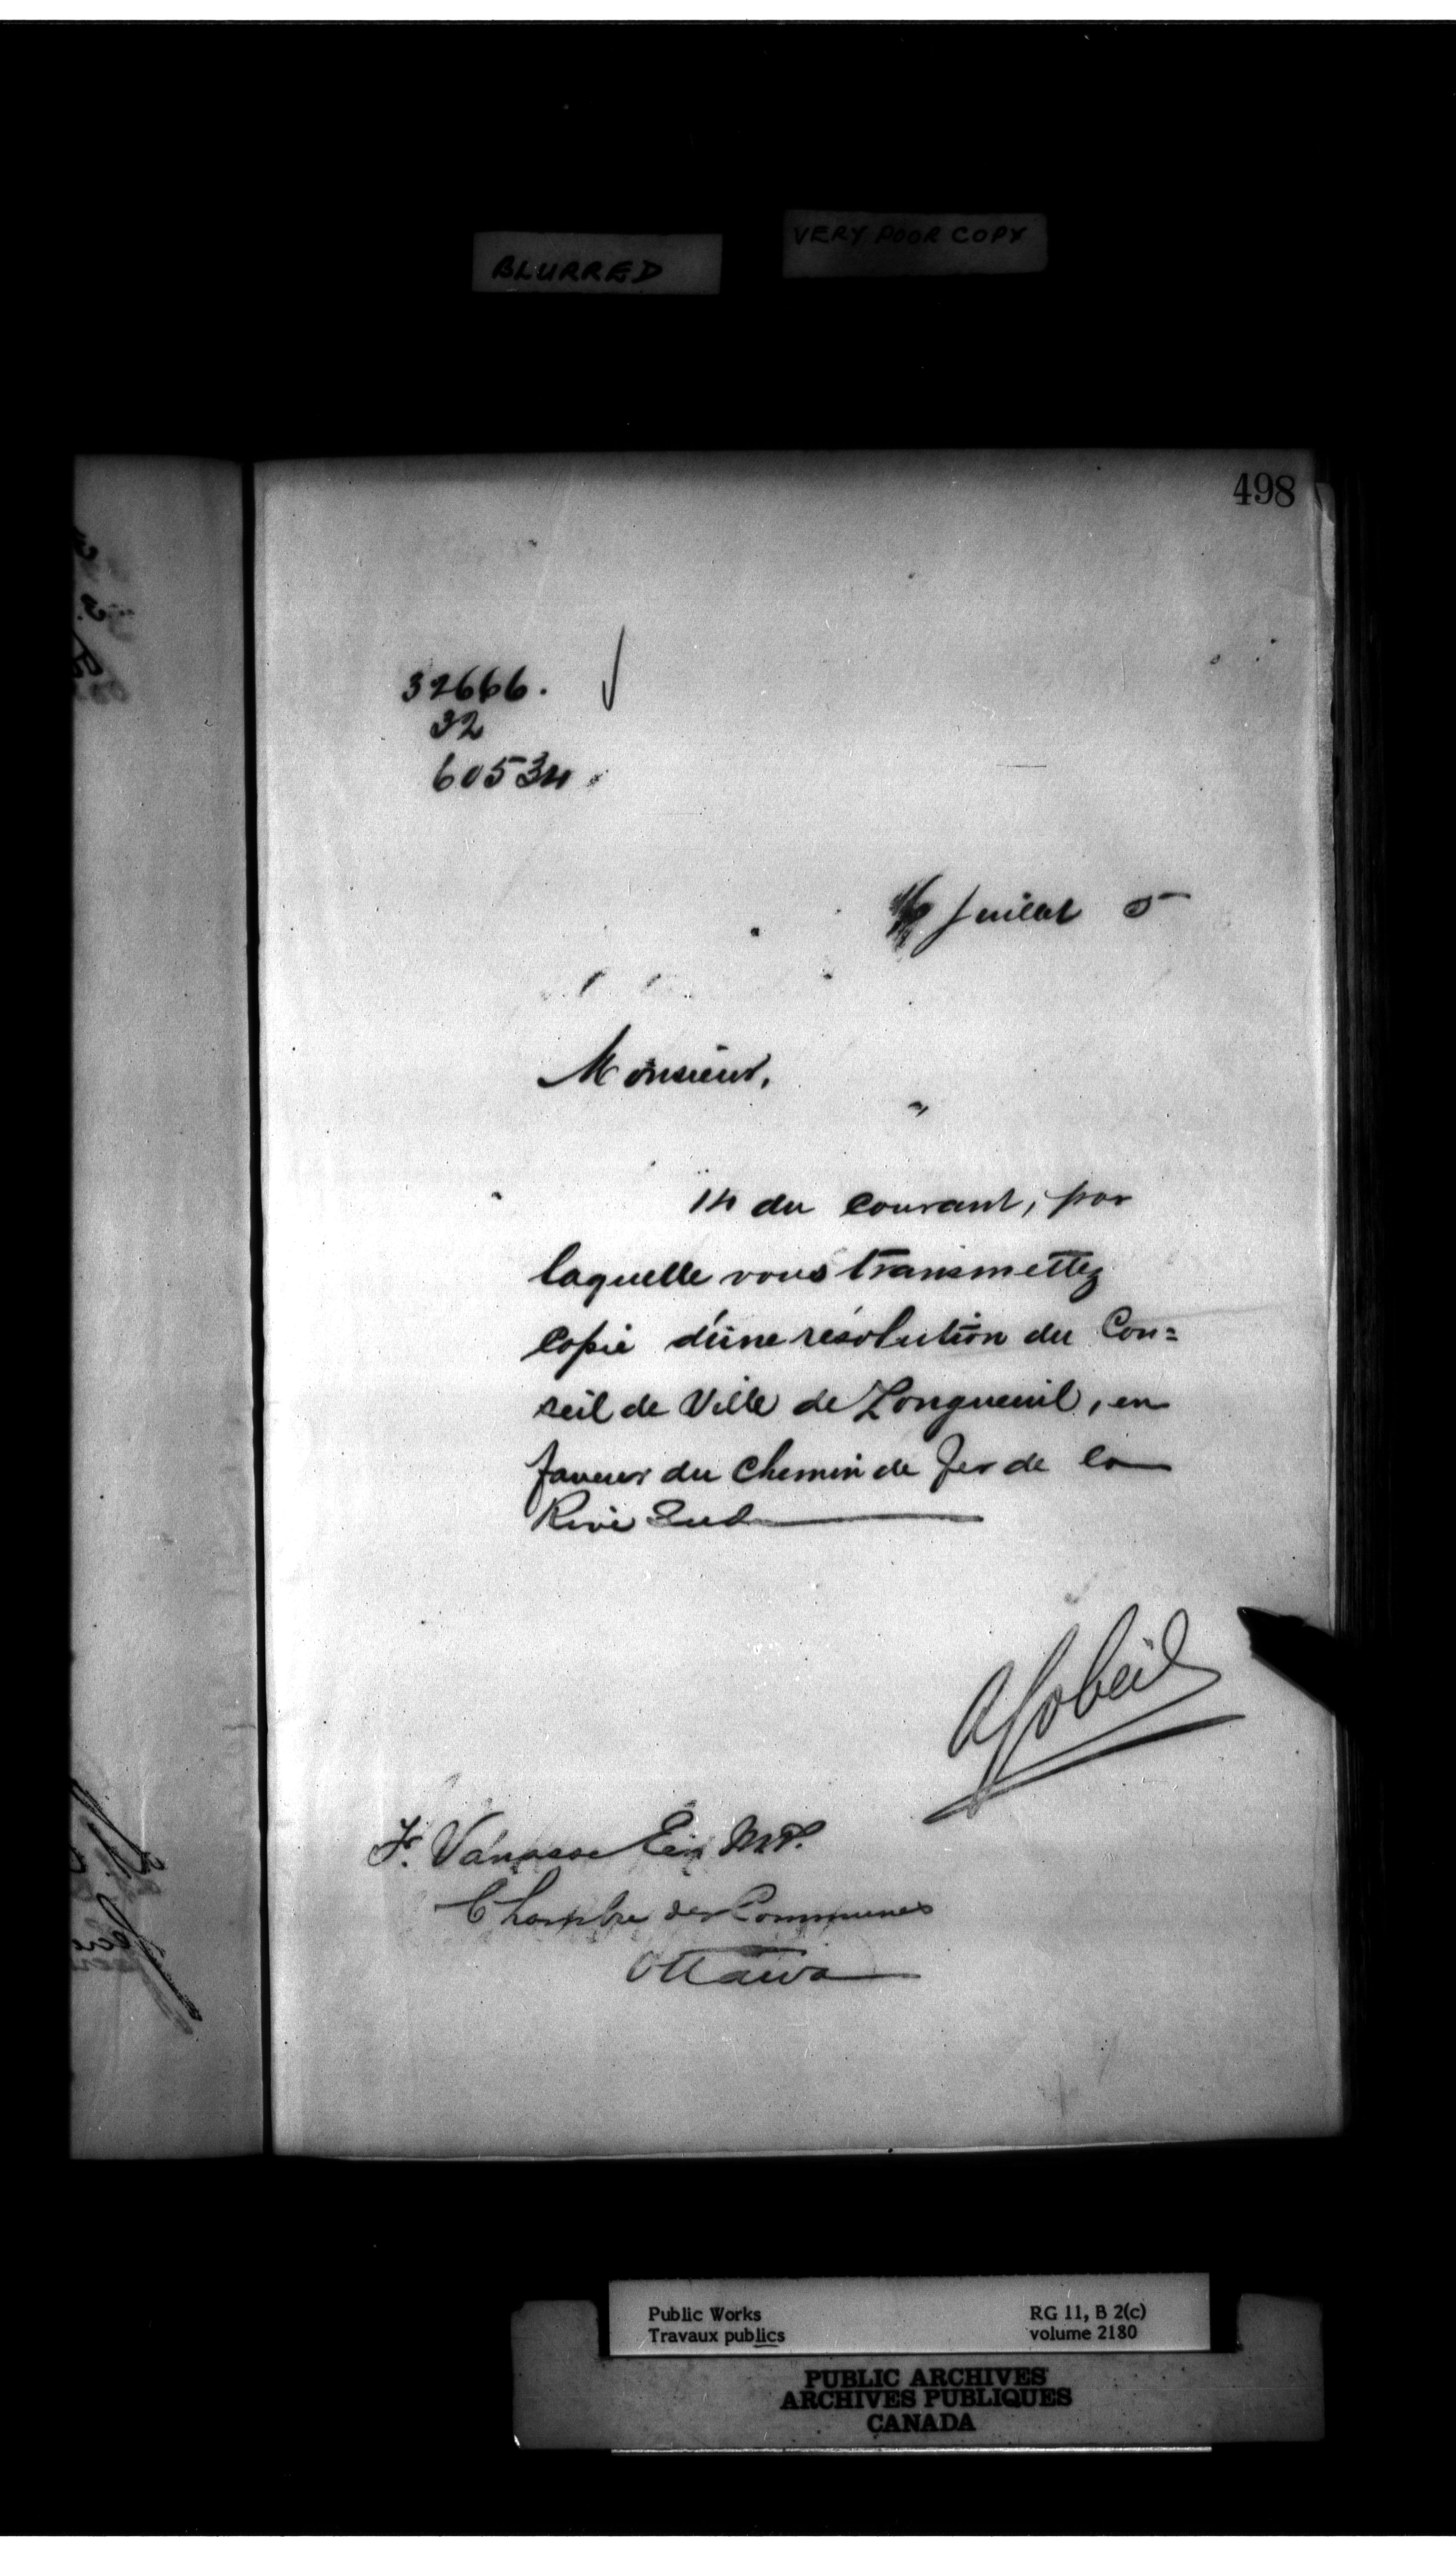 BLURRED
VERY POOR COPY
498
32666.
32
60534
Juillet 5
Monsieur,
14 du courant, par
laquelle vous transmettez
copie d'une résolution du Con=
seil de Ville de Longueuil, en
faveur du Chemin de fer de la
Rive Sud
AGobeil
F. Vanasse Ecr M.P.
Chambre des Communes
Ottawa
Public Works
Travaux publics
RG 11, B 2(c)
volume 2180
PUBLIC ARCHIVES
ARCHIVES PUBLIQUES
CANADA